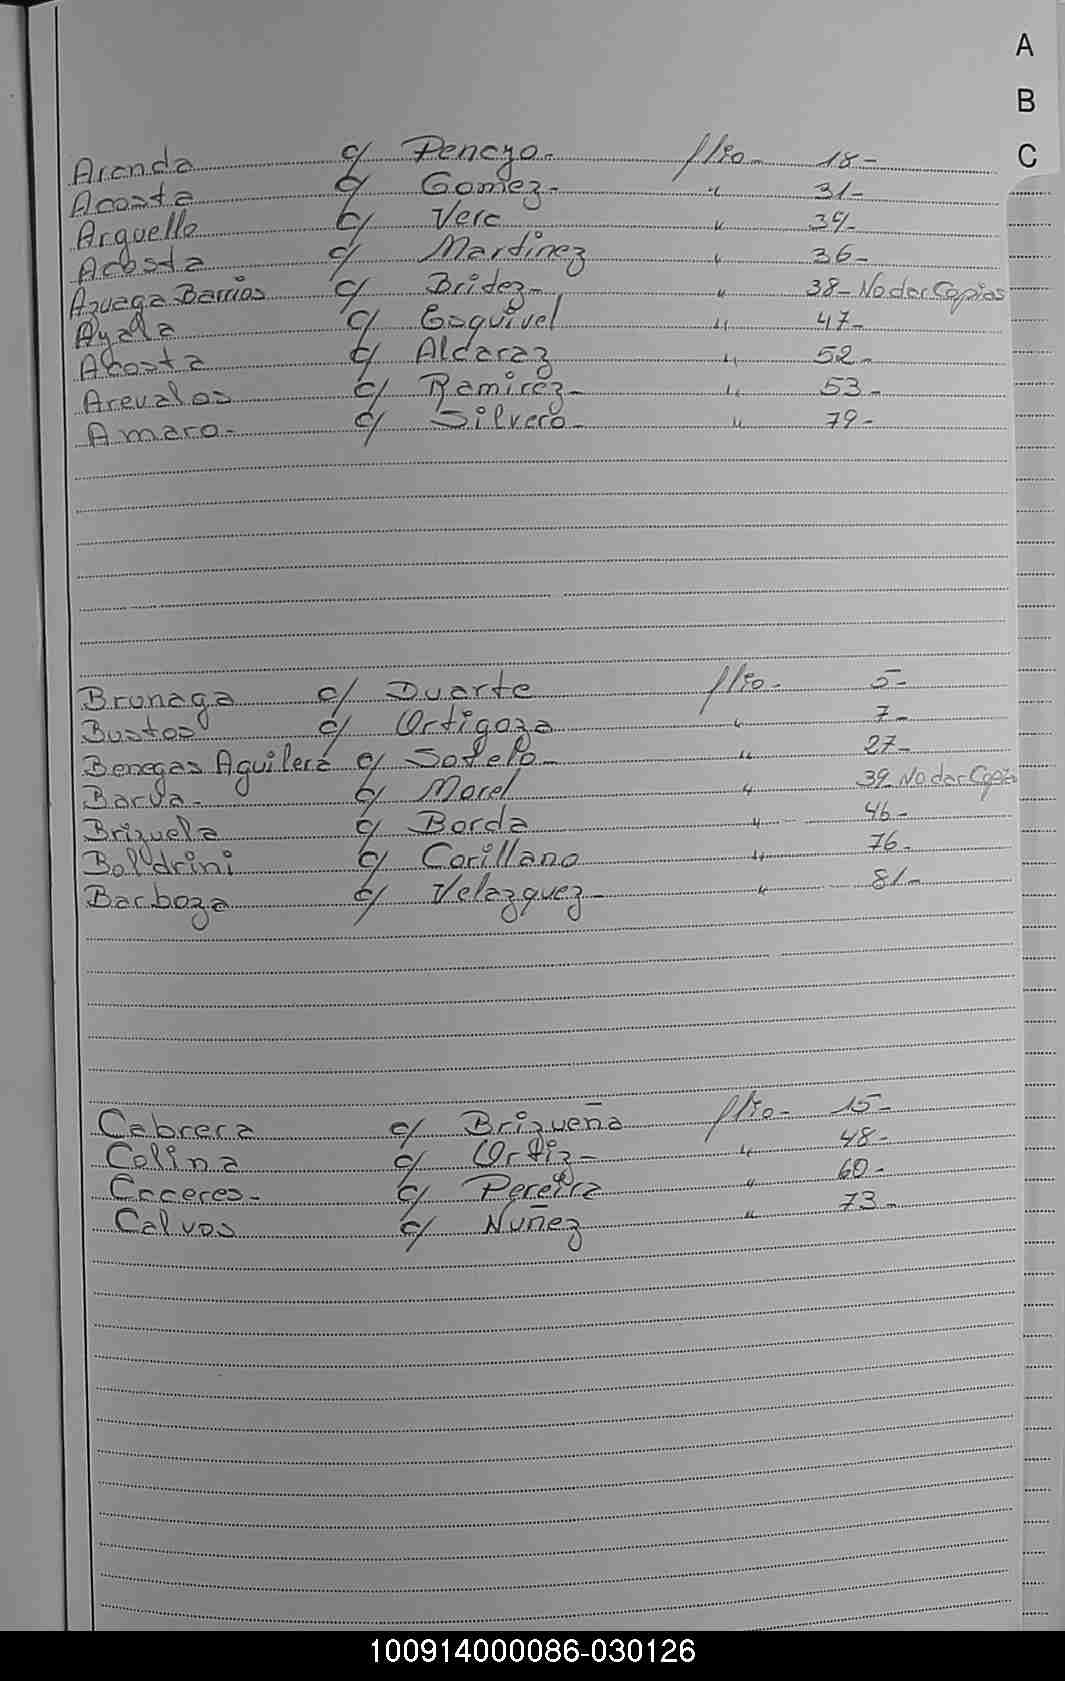 A
B
C
Aranda c/ Penayo - flio - 18 -
Acosta c/ Gomez - " 31 -
Arguello c/ Vera " 34 -
Acosta c/ Martinez " 36 -
Azuaga Barrios c/ Bridez - " 38 - No dar Copias
Ayala c/ Esquivel " 47 -
Acosta c/ Alcaraz " 52 -
Arevalos c/ Ramirez - " 53 -
Amaro - c/ Silvero - " 79 -
Brunaga c/ Duarte flio - 5 -
Bustos c/ Ortigoza " 7 -
Benegas Aguilera c/ Sotelo - " 27 -
Barua - c/ Morel " 39 - No dar Copia
Brizuela c/ Borda " 46 -
Boldrini c/ Carillano " 76 -
Barboza c/ Velazquez - " 81 -
Cabrera c/ Brizueña flio - 15 -
Colina c/ Ortiz - " 48 -
Caceres - c/ Pereira " 60 -
Calvos c/ Nuñez " 73 -
100914000086-030126